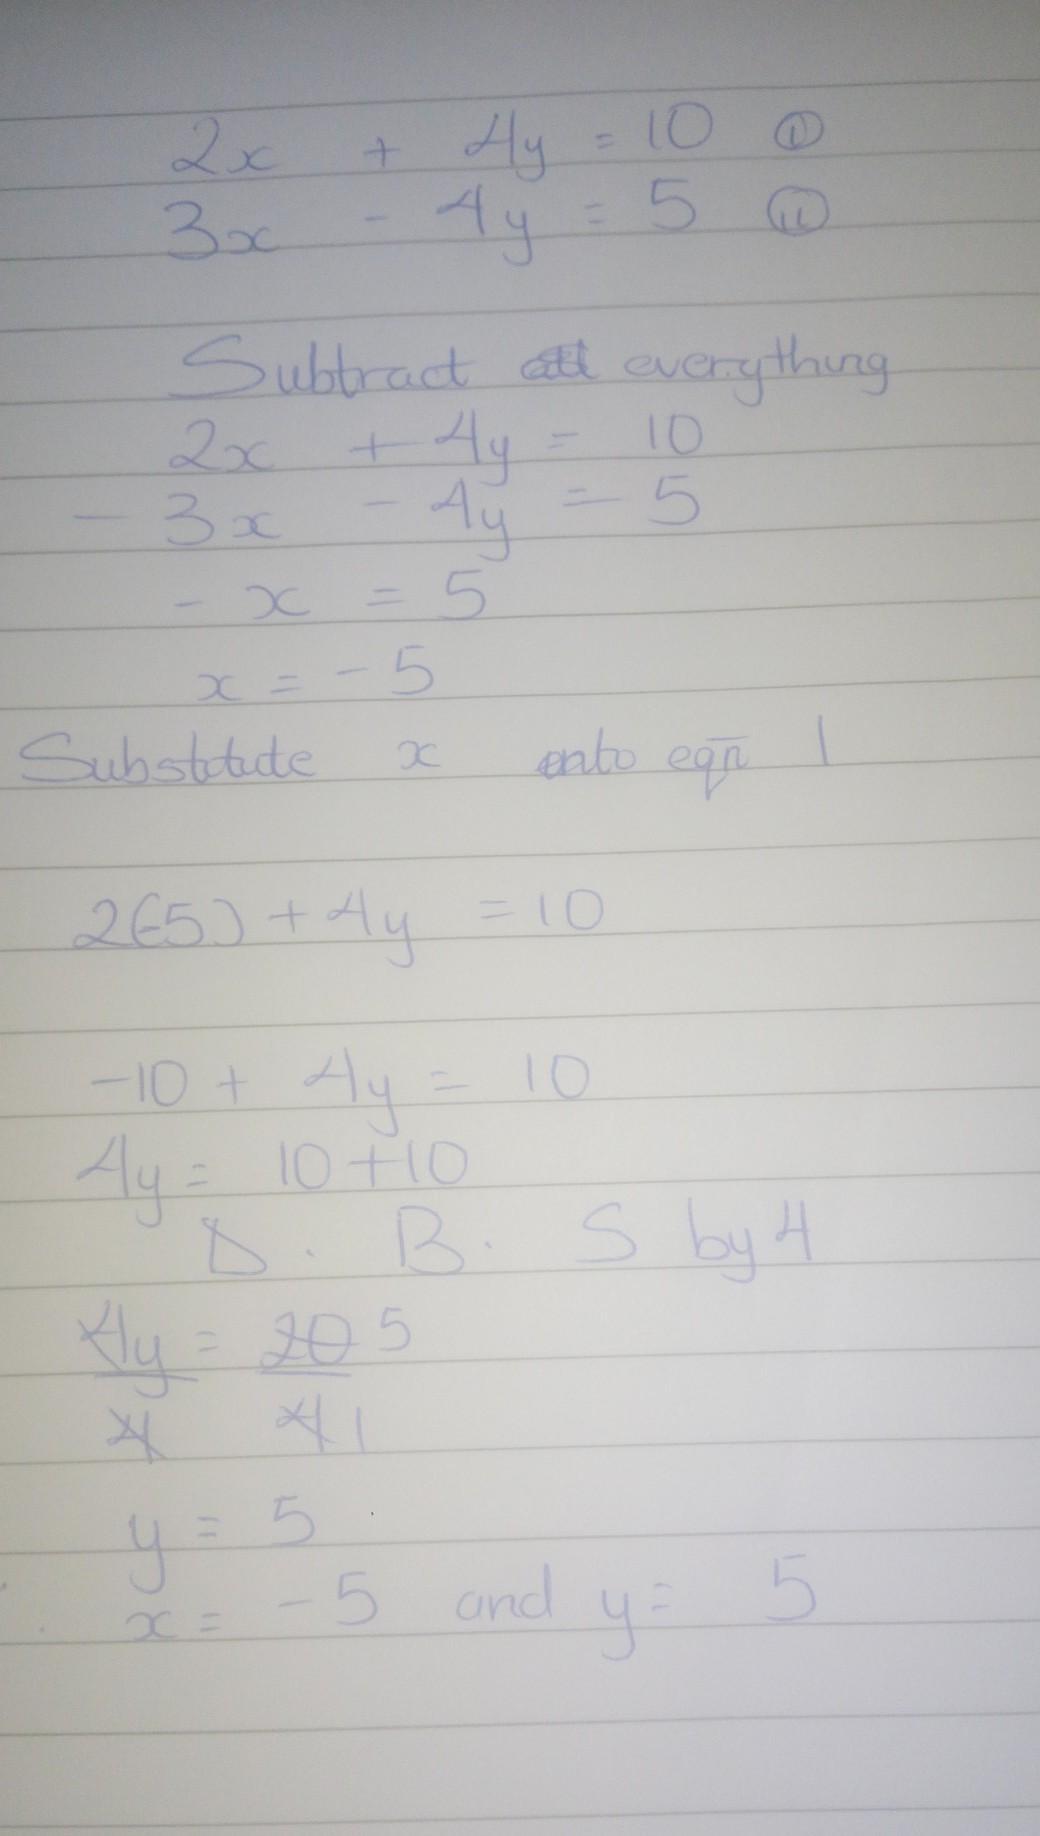 2x + 4y = 10 (i)
3x - 4y = 5 (ii)
Subtract everything
2x + 4y = 10
- 3x - 4y = 5
- x = 5
x = - 5
Substitute x onto eqn 1
2(-5) + 4y = 10
-10 + 4y = 10
4y = 10 + 10
D. B. S by 4
4y = 20 5
4 4 1
y = 5
x = - 5 and y = 5